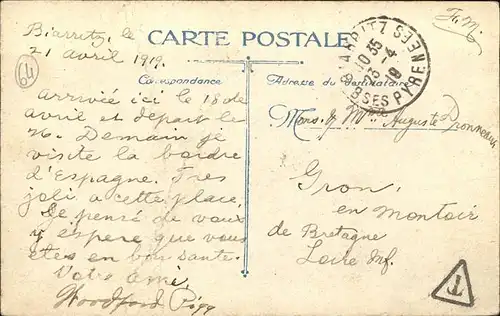 Biarritz, le
21 avril 1919.
64
CARTE POSTALE
Correspondance
Adresse du destinataire
BIARRITZ
10 35
-4
19
BSES PYRENEES
F.M.
arrivée ici le 18 de
avril et départ le
26. Demain je
visite la bordre
d'Espagne. Tres
joli a cette place.
De pensé de vous
y espere que vous
etes en bon sante.
Votre ami,
Woodford
Mons. & Mme Auguste
Gron,
en Montoir
de Bretagne
Loire Inf.
T